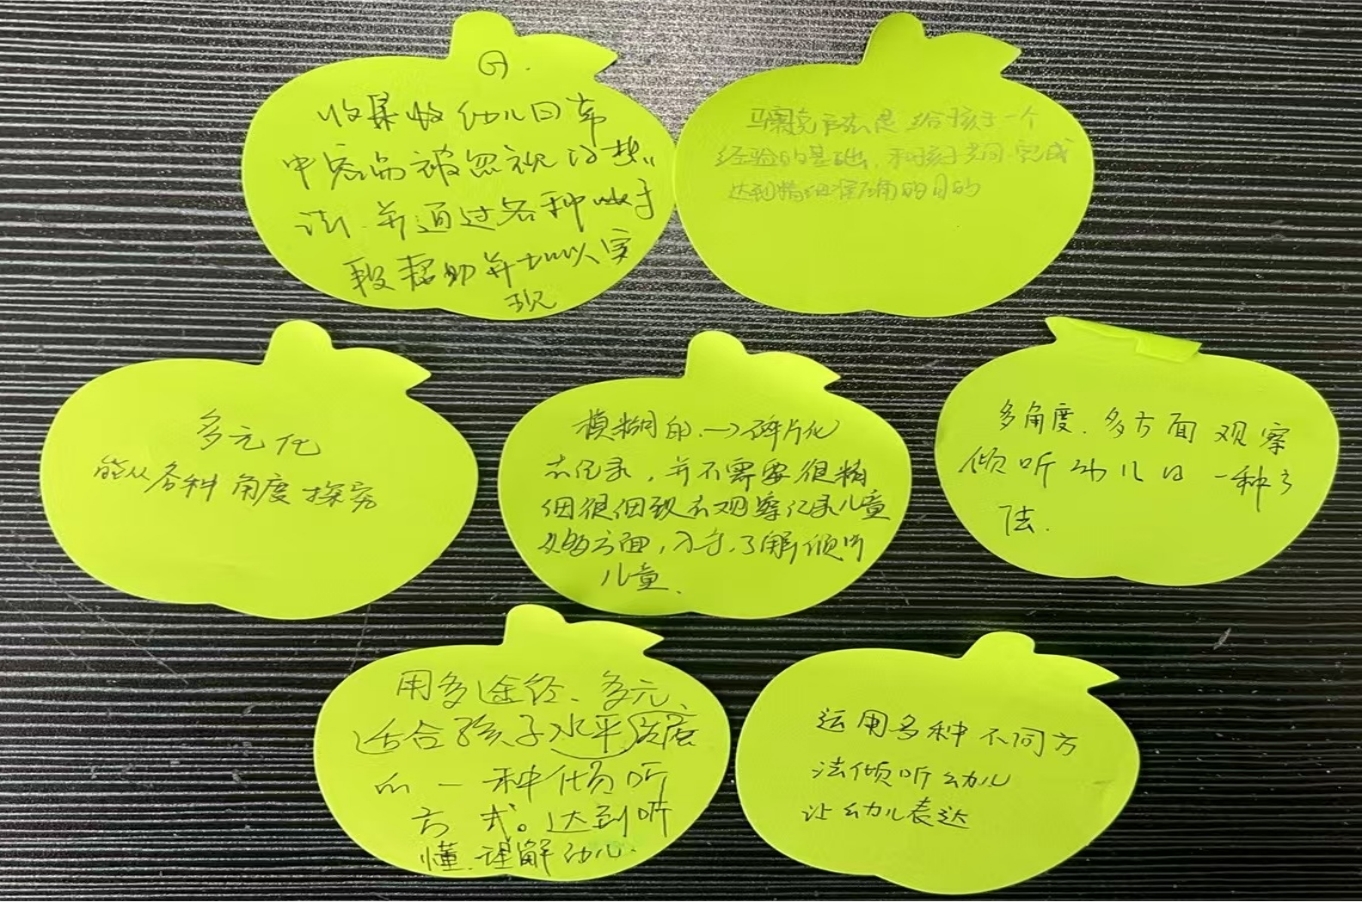 收集收幼儿日常
中容易被忽视的想
法.并通过各种
段帮助并加以实
现
马赛克方法是给孩子一个
经验的基础、和孩子共同完成
达到精细准确的目的
多元化
能从各种角度探究
模糊的.→碎片化
去记录，并不需要很精
细很细致去观察记录儿童
从多方面，入手,了解倾听
儿童.
多角度.多方面观察
倾听幼儿的一种方
法.
用多途径、多元、
适合孩子水平
的一种倾听
方式。达到听
懂.理解幼儿.
运用多种不同方
法倾听幼儿
让幼儿表达